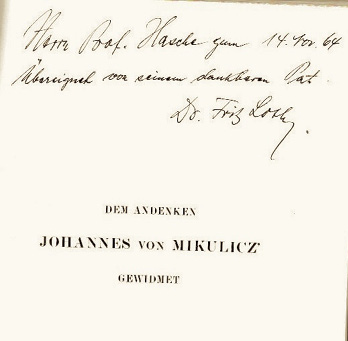 Herrn Prof. Hasche zum 14. Nov. 64
Übereignet von seinem dankbaren Pat.
Dr. Fritz
DEM ANDENKEN
JOHANNES VON MIKULICZ
GEWIDMET